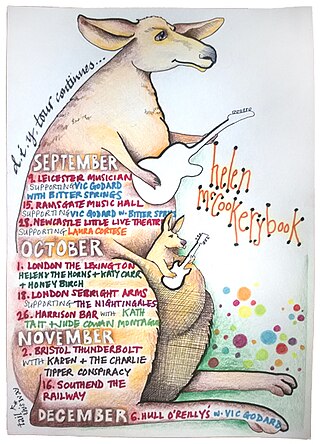 d.i.y. tour continues...
helen
McCookerybook
SEPTEMBER
9. LEICESTER MUSICIAN
SUPPORTING VIC GODARD
WITH BITTER SPRINGS
15. RAMSGATE MUSIC HALL
SUPPORTING VIC GODARD W. BITTER SPRGS
28. NEWCASTLE LITTLE LIVE THEATRE
SUPPORTING LAURA CORTESE
OCTOBER
1. LONDON THE LEXINGTON
HELEN & THE HORNS + KATY CARR
+ HONEY BIRCH
18. LONDON SEBRIGHT ARMS
SUPPORTING THE NIGHTINGALES
26. HARRISON BAR WITH KATH
TAIT + JUDE COWAN MONTAGUE
NOVEMBER
2. BRISTOL THUNDERBOLT
WITH KAREN + THE CHARLIE
TIPPER CONSPIRACY
16. SOUTHEND THE
RAILWAY
DECEMBER 6. HULL O'REILLYS W. VIC GODARD